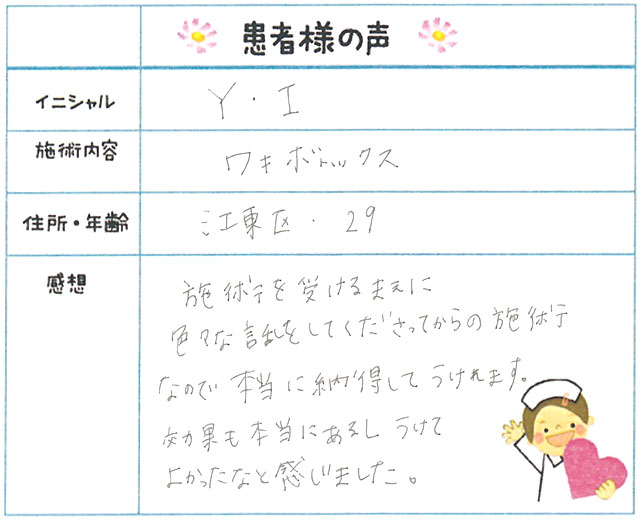 患者様の声
イニシャル
Y・I
施術内容
ワキボトックス
住所・年齢
江東区・29
感想
施術を受けるまえに
色々な話をしてくださってからの施術
なので本当に納得してうけれます。
効果も本当にあるしうけて
よかったなと感じました。